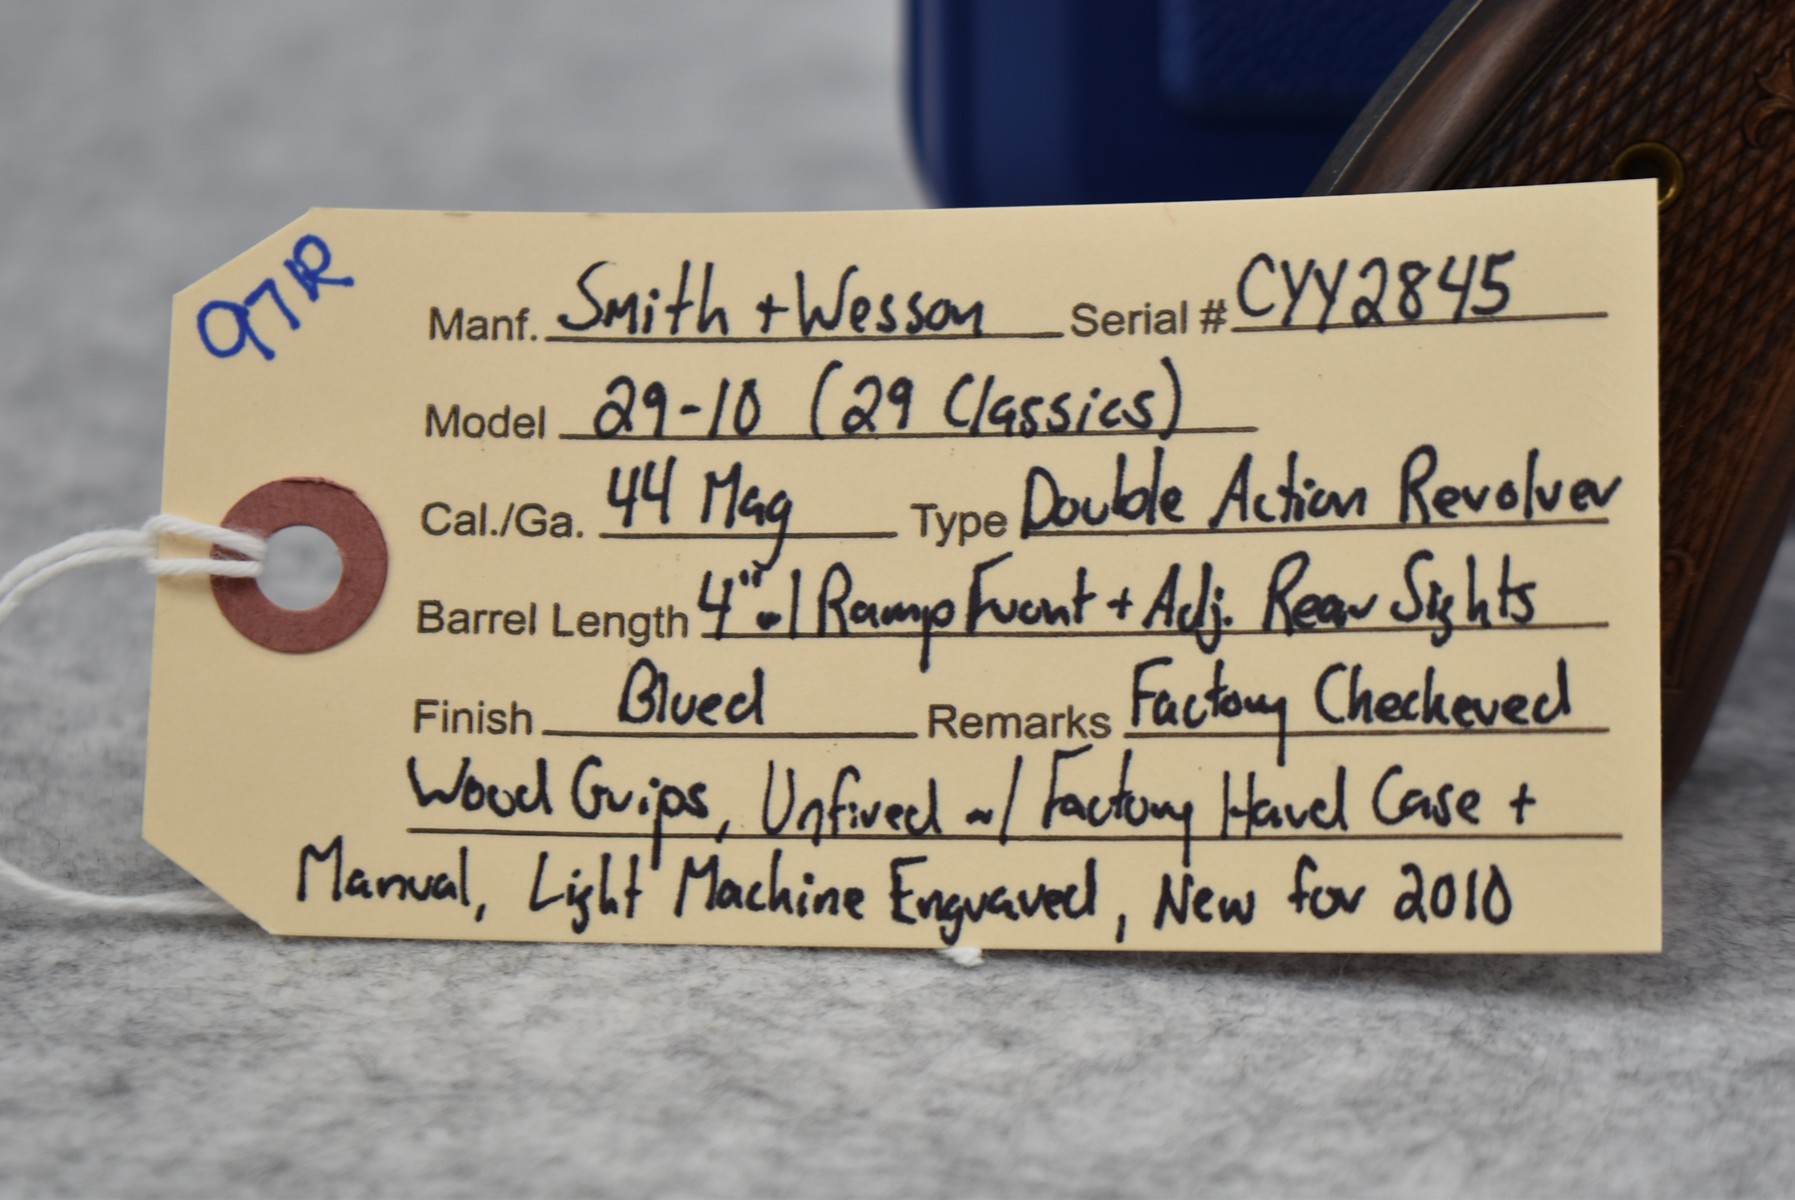 97R
Manf. Smith + Wesson Serial # CYY2845
Model 29-10 (29 Classics)
Cal./Ga. 44 Mag Type Double Action Revolver
Barrel Length 4" w/ Ramp Front + Adj. Rear Sights
Finish Blued Remarks Factory Checkered
Wood Grips, Unfired w/ Factory Hard Case +
Manual, Light Machine Engraved, New for 2010